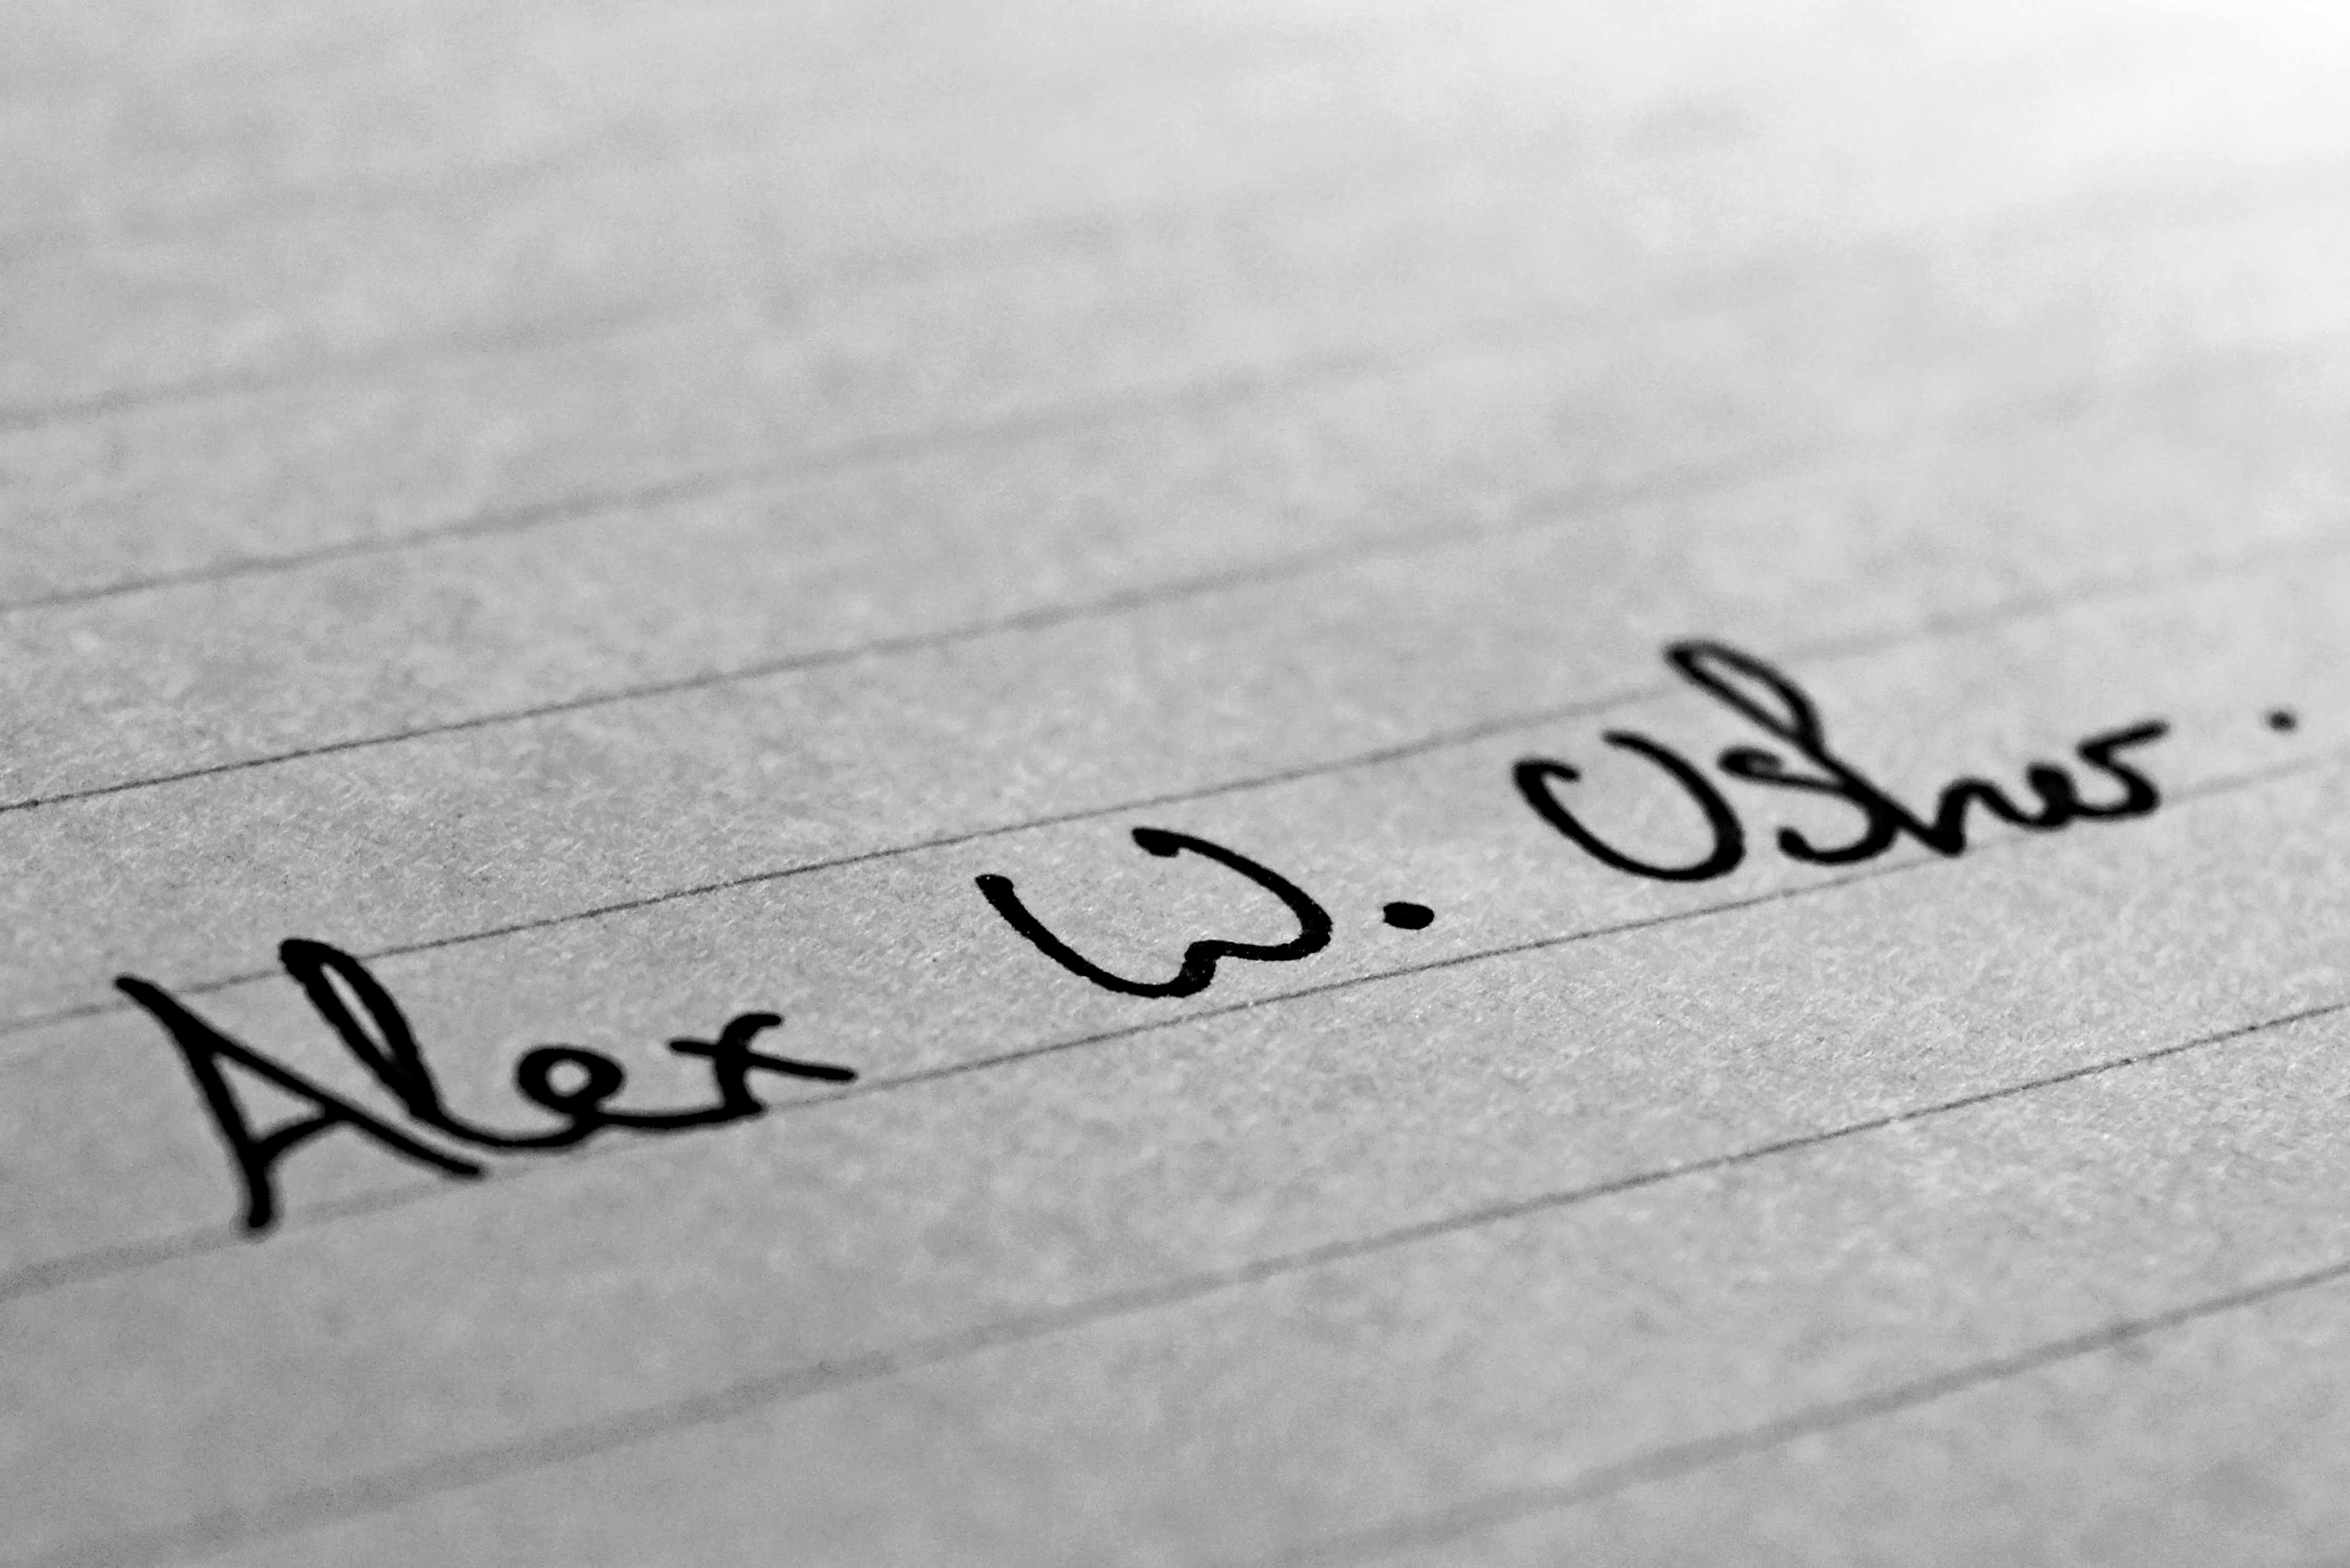 Alex W. Usher.